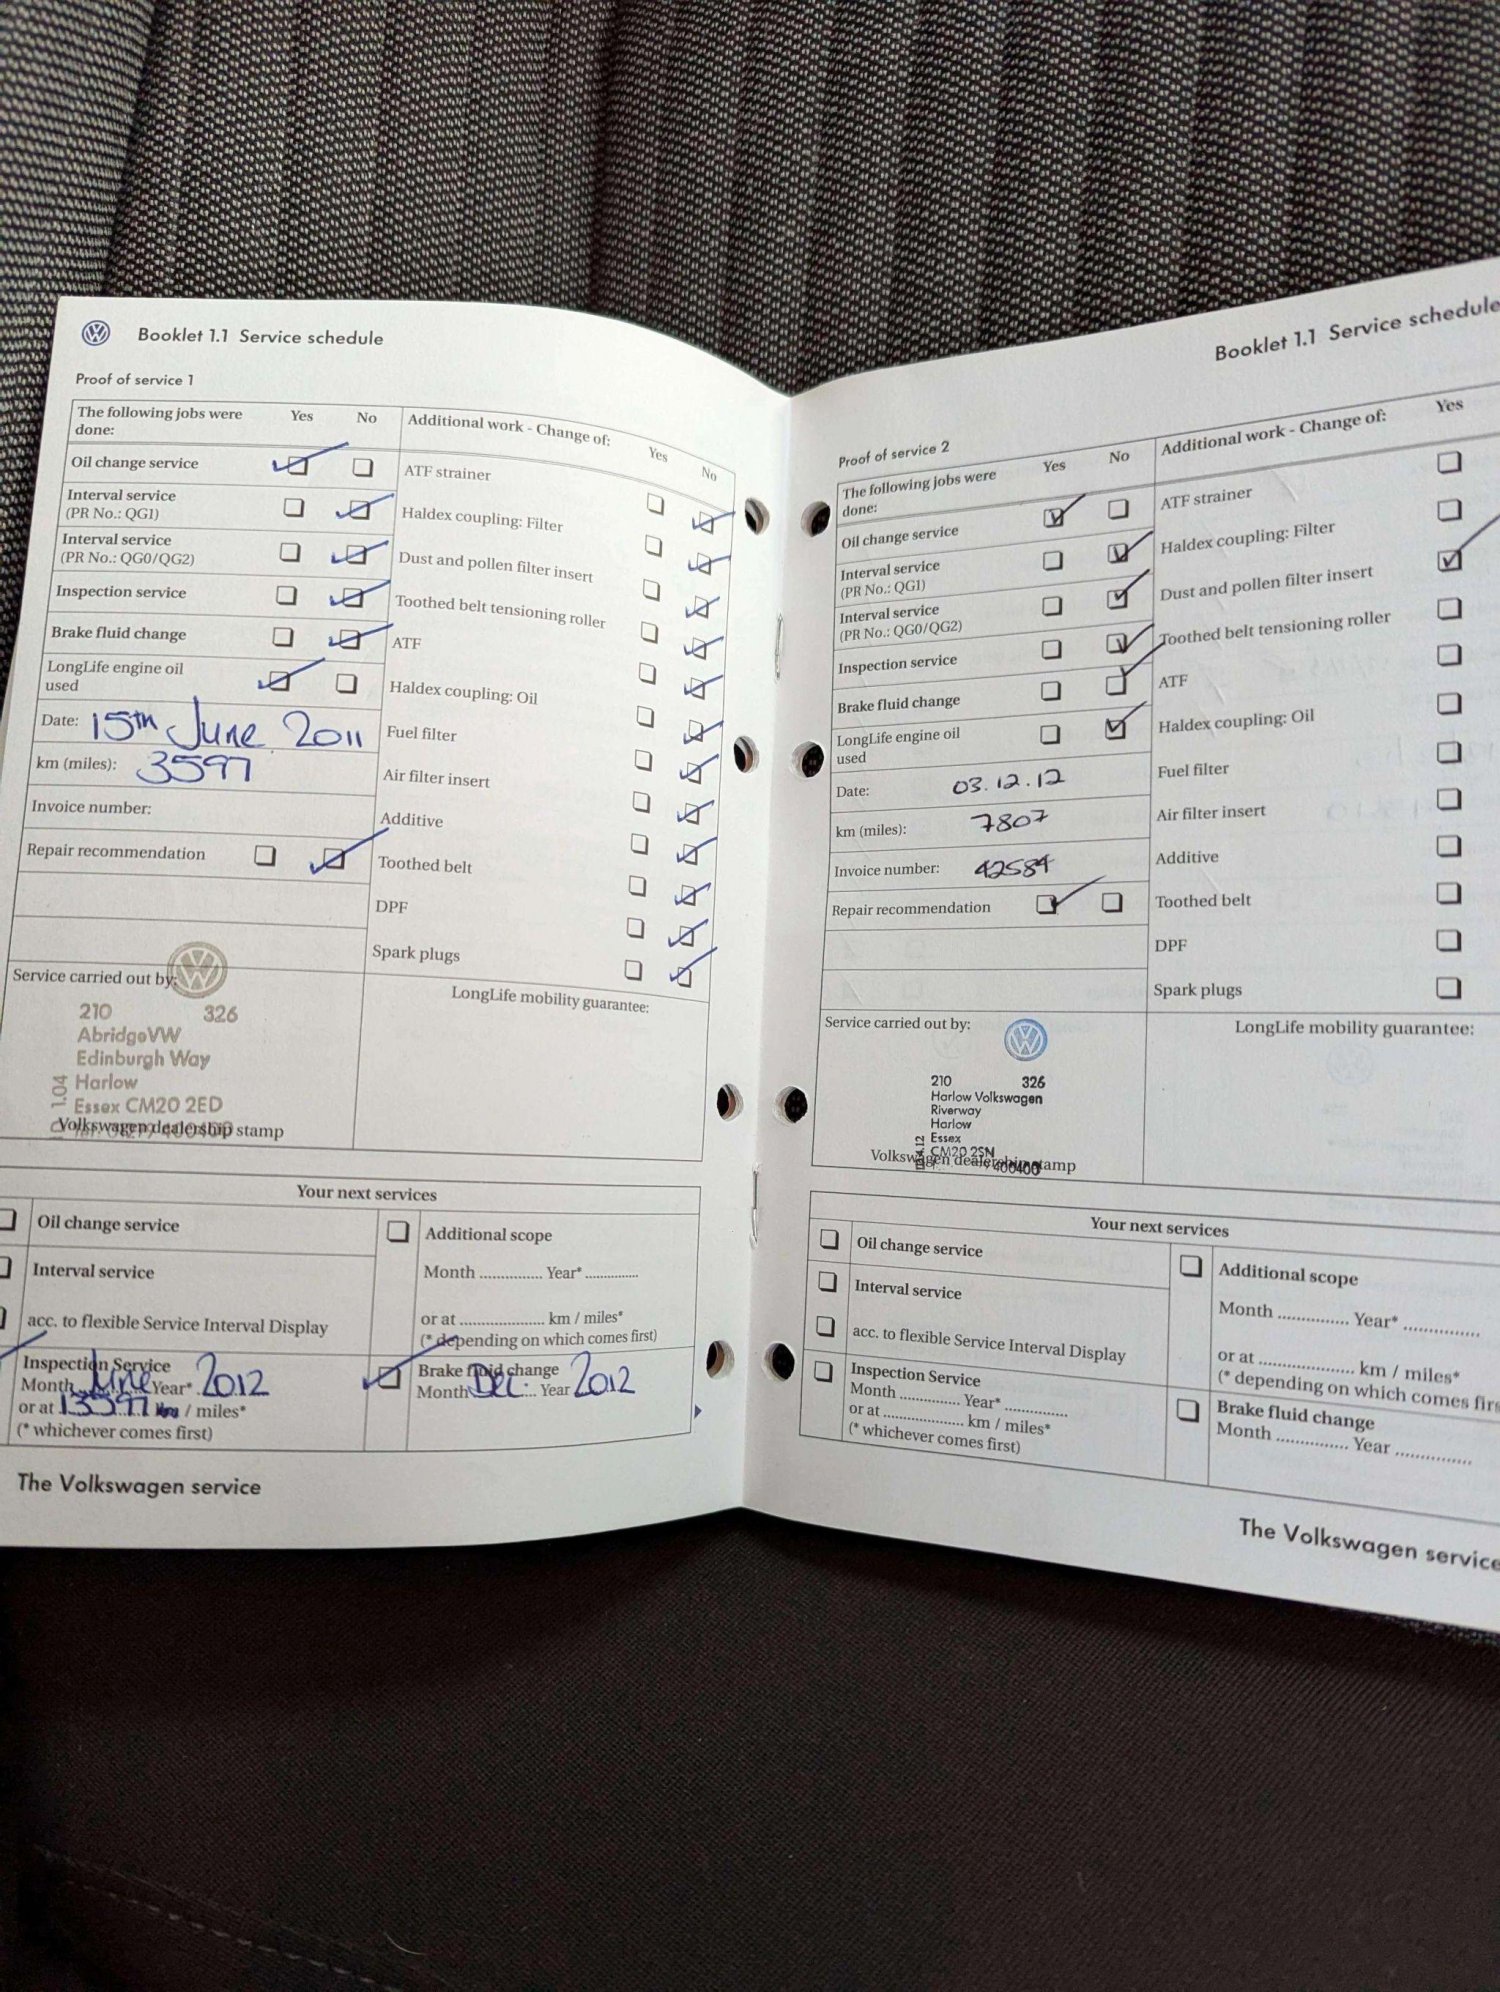 Booklet 1.1 Service schedule
Proof of service 1
The following jobs were done: Yes No
Oil change service
Interval service
(PR No.: QG1)
Interval service
(PR No.: QG0/QG2)
Inspection service
Brake fluid change
LongLife engine oil
used
Date: 15th June 2011
km (miles): 3597
Invoice number:
Repair recommendation
Additional work - Change of: Yes No
ATF strainer
Haldex coupling: Filter
Dust and pollen filter insert
Toothed belt tensioning roller
ATF
Haldex coupling: Oil
Fuel filter
Air filter insert
Additive
Toothed belt
DPF
Spark plugs
Service carried out by:
210 326
AbridgeVW
Edinburgh Way
Harlow
Essex CM20 2ED
1.04
Volkswagen dealership stamp
LongLife mobility guarantee:
Your next services
Oil change service
Interval service
acc. to flexible Service Interval Display
Inspection Service
Month June Year* 2012
or at 13597 km / miles*
(* whichever comes first)
Additional scope
Month .............. Year* ............
or at .................... km / miles*
(* depending on which comes first)
Brake fluid change
Month Dec. Year 2012
The Volkswagen service
Booklet 1.1 Service schedule
Proof of service 2
The following jobs were
done: Yes No
Oil change service
Interval service
(PR No.: QG1)
Interval service
(PR No.: QG0/QG2)
Inspection service
Brake fluid change
LongLife engine oil
used
Date: 03.12.12
km (miles): 7807
Invoice number: 42584
Repair recommendation
Additional work - Change of: Yes
ATF strainer
Haldex coupling: Filter
Dust and pollen filter insert
Toothed belt tensioning roller
ATF
Haldex coupling: Oil
Fuel filter
Air filter insert
Additive
Toothed belt
DPF
Spark plugs
Service carried out by:
210 326
Harlow Volkswagen
Riverway
Harlow
Essex
CM20 2SN
400400
Volkswagen dealership stamp
LongLife mobility guarantee:
Your next services
Oil change service
Interval service
acc. to flexible Service Interval Display
Inspection Service
Month .............. Year* ..............
or at .................. km / miles*
(* whichever comes first)
Additional scope
Month ............... Year* ...............
or at .................... km / miles*
(* depending on which comes firs
Brake fluid change
Month ............... Year ...............
The Volkswagen service